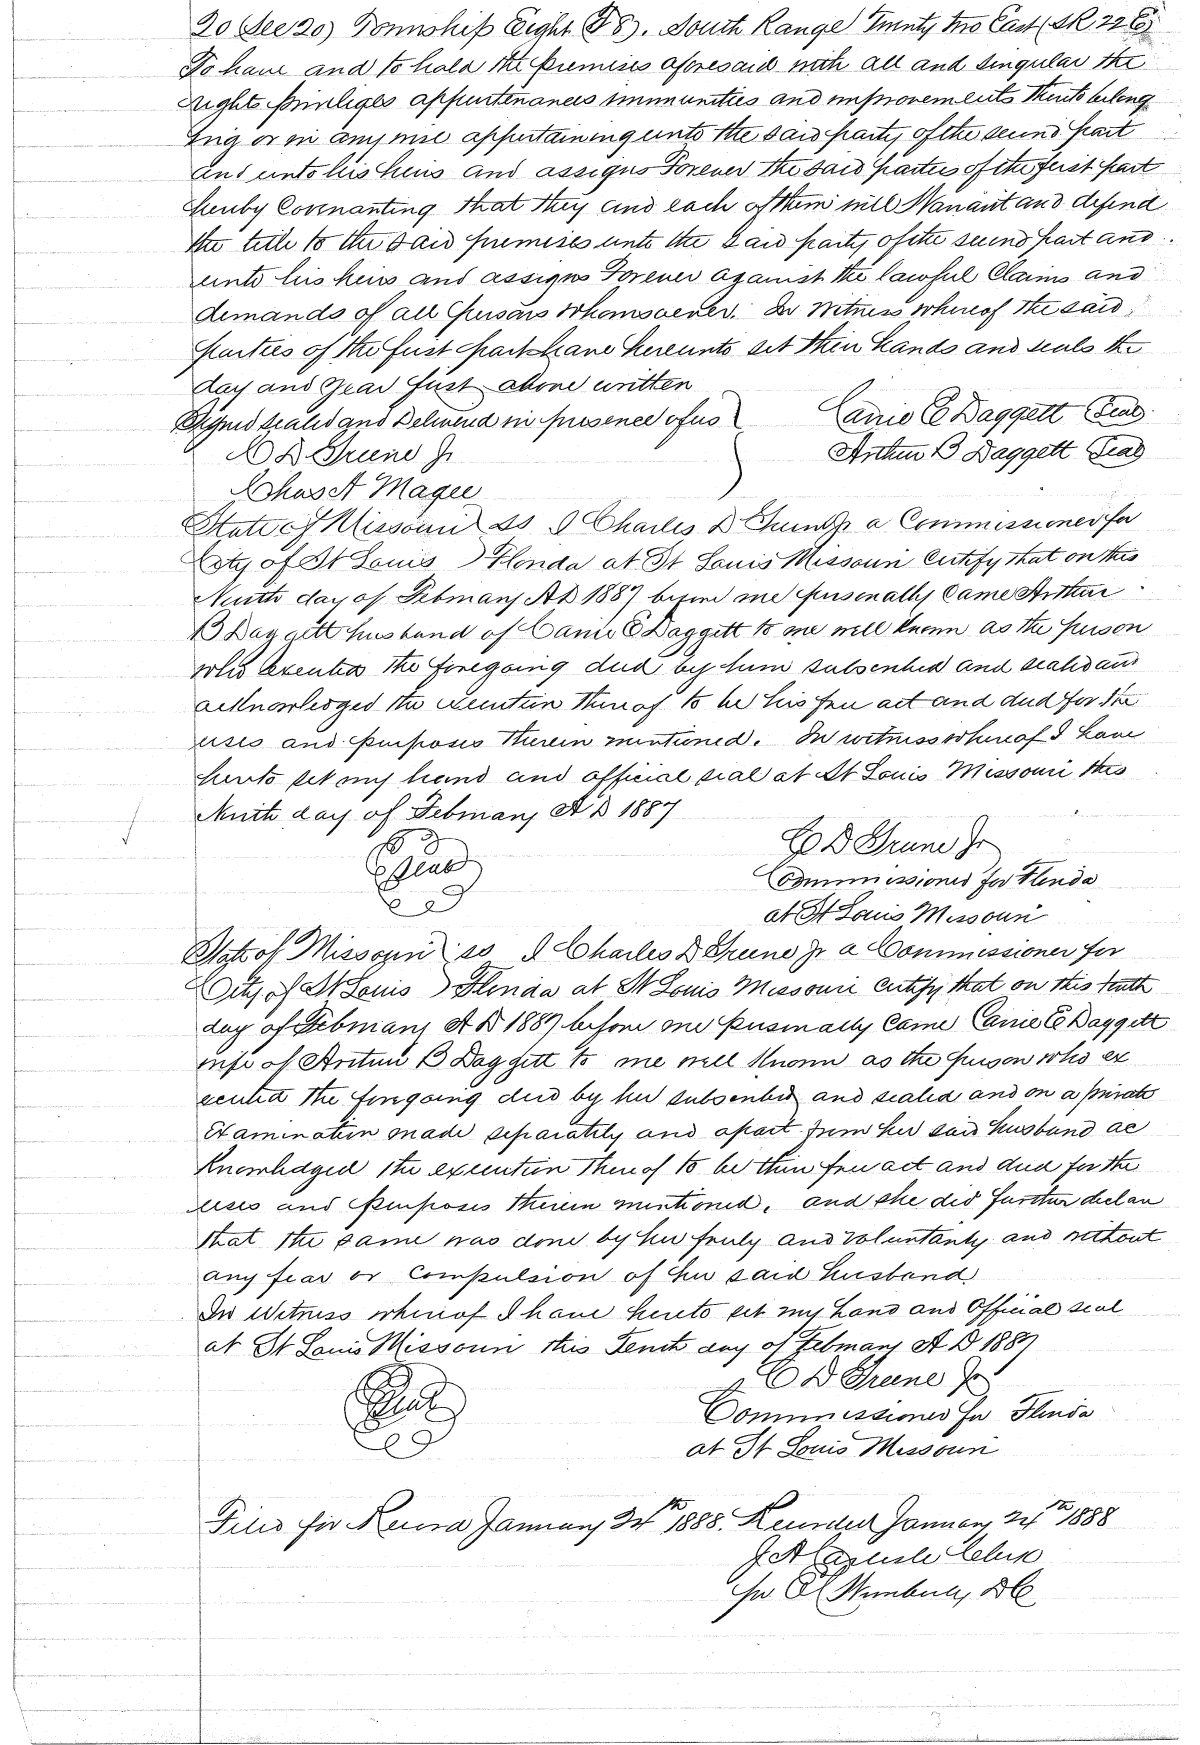 20 (Sec 20) Township Eight (T 8). South Range Twenty two East (S R. 22 E)
To have and to hold the premises aforesaid with all and singular the
rights priviliges appurtenances immunities and improvements thereto belong
ing or in any wise appertaining unto the said party of the second part
and unto his heirs and assigns Forever the said parties of the first part
hereby Covenanting that they and each of them will Warrant and defend
the title to the said premises unto the said party of the second part and
unto his heirs and assigns Forever against the lawful Claims and
demands of all persons whomsoever. In Witness whereof the said
parties of the first part have hereunto set their hands and seals the
day and year first above written
Signed sealed and Delivered in presence of us } Carrie E Daggett (Seal)
C D Greene Jr Arthur B Daggett (Seal)
Chas A Magee
State of Missouri } ss I Charles D Greene Jr a Commissioner for
City of St Louis } Florida at St Louis Missouri Certify that on this
Ninth day of February A D 1887 before me personally Came Arthur
B Daggett husband of Carrie E Daggett to me well known as the person
who executed the foregoing deed by him subscribed and sealed and
acknowledged the execution thereof to be his free act and deed for the
uses and purposes therein mentioned. In witness whereof I have
hereto set my hand and official seal at St Louis Missouri this
Ninth day of February A D 1887
(Seal) C D Greene Jr
Commissioner for Florida
at St Louis Missouri
State of Missouri } ss I Charles D Greene Jr a Commissioner for
City of St Louis } Florida at St Louis Missouri Certify that on this tenth
day of February A D 1887 before me personally Came Carrie E Daggett
wife of Arthur B Daggett to me well known as the person who ex
ecuted the foregoing deed by her subscribed and sealed and on a private
Examination made separately and apart from her said husband ac
knowledged the execution thereof to be their free act and deed for the
uses and purposes therein mentioned, and she did further declare
that the same was done by her freely and voluntarily and without
any fear or compulsion of her said husband
In Witness whereof I have hereto set my hand and Official seal
at St Louis Missouri this Tenth day of February A D 1887
(Seal) C D Greene Jr
Commissioner for Florida
at St Louis Missouri
Filed for Record January 24th 1888. Recorded January 24th 1888
J A Clerk
per D C